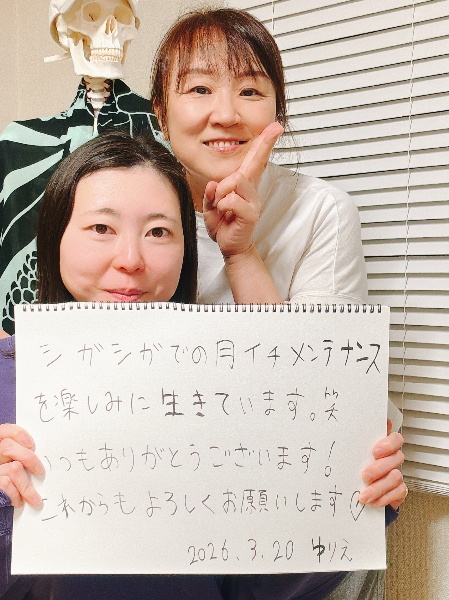 シガシガでの月イチメンテナンス
を楽しみに生きています。笑
いつもありがとうございます!
これからもよろしくお願いします♡
2026.3.20 ゆりえ